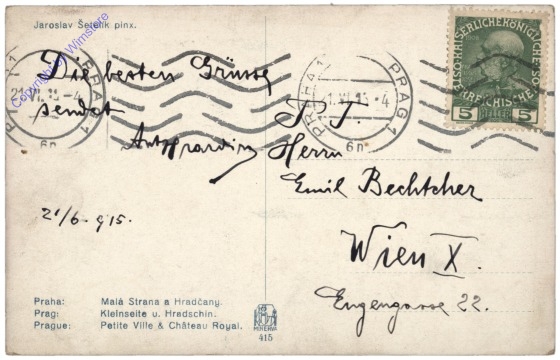 Jaroslav Šetelík pinx.
Copyright by Wimstore
Die besten Grüsse
sendet
21/6. 915.
PRAHA 1
PRAG 1
21.VI.15-4
6n
PRAHA 1
PRAG 1
6n
5 HELLER 5
S. T.
Herrn
Emil Bechtcher
Wien X.
Engengasse 22.
Praha: Malá Strana a Hradčany.
Prag: Kleinseite u. Hradschin.
Prague: Petite Ville & Château Royal.
MINERVA
415